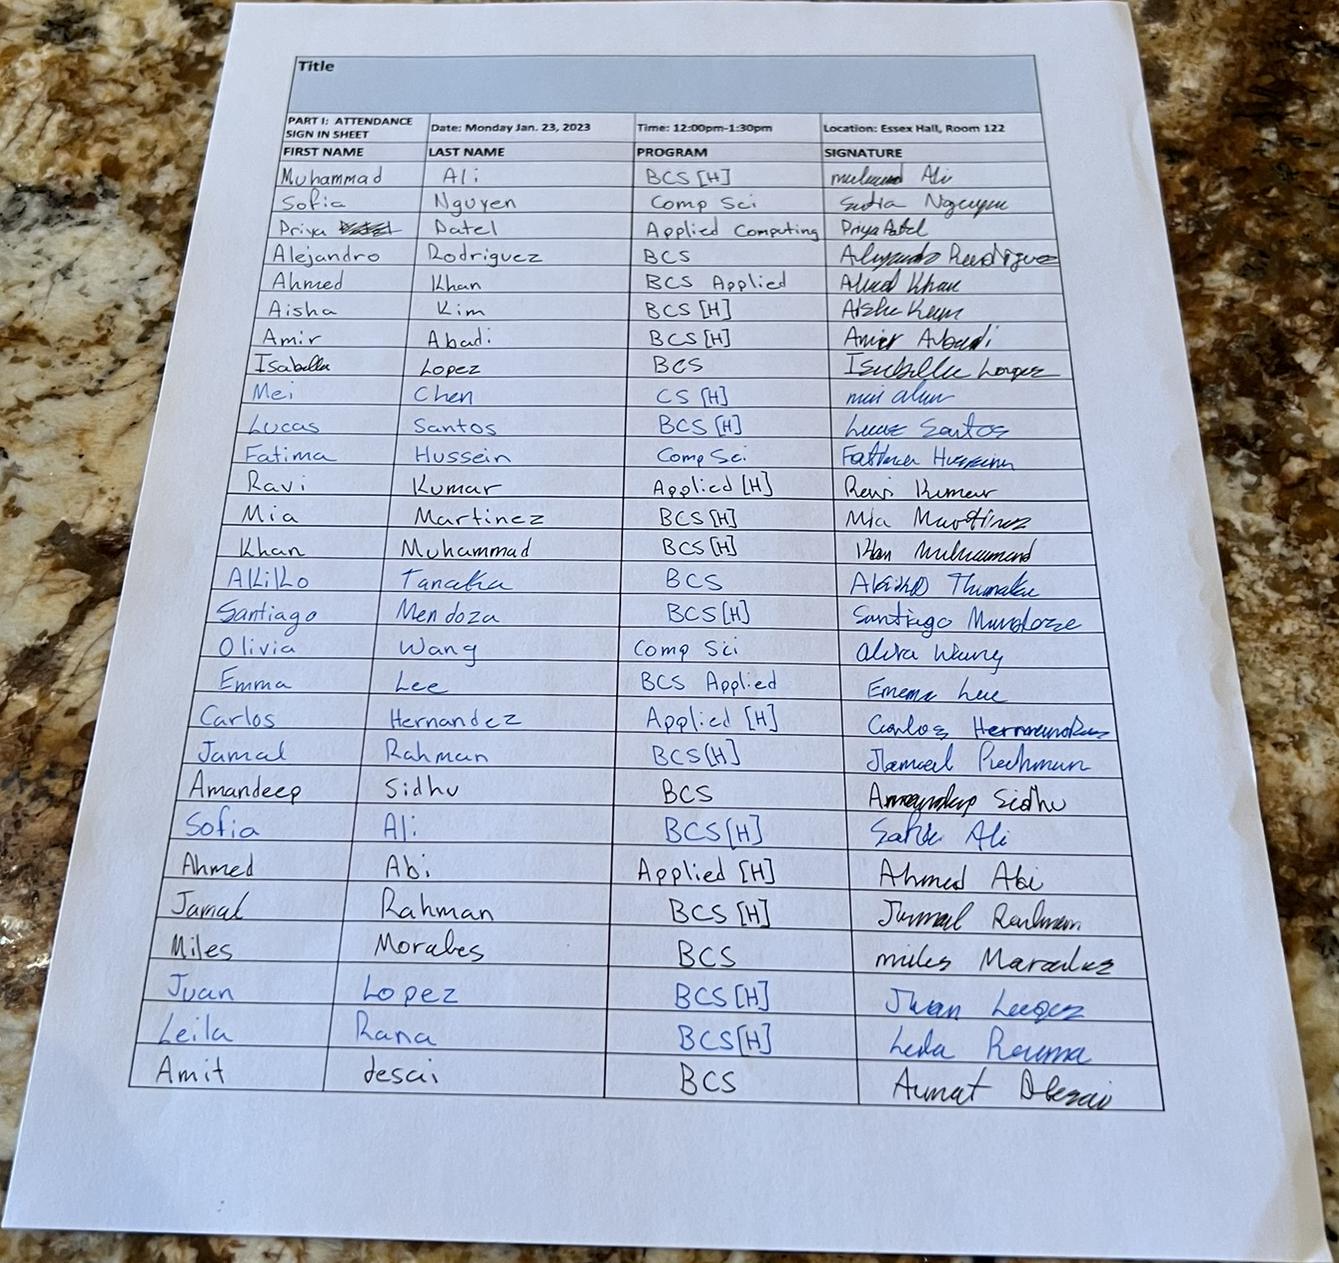 Title
PART I: ATTENDANCE SIGN IN SHEET Date: Monday Jan. 23, 2023 Time: 12:00pm-1:30pm Location: Essex Hall, Room 122
FIRST NAME LAST NAME PROGRAM SIGNATURE
Muhammad Ali BCS [H] Ali
Sofia Nguyen Comp Sci Nguyen
Priya Patel Applied Computing Priya Patel
Alejandro Rodriguez BCS Alejandro Rodriguez
Ahmed Khan BCS Applied Ahmed Khan
Aisha Kim BCS [H] Aisha Kim
Amir Abadi BCS [H] Amir Abadi
Isabella Lopez BCS Isabella Lopez
Mei Chen CS [H] mei chen
Lucas Santos BCS [H] Lucas Santos
Fatima Hussein Comp Sci Fatima Hussein
Ravi Kumar Applied [H] Ravi Kumar
Mia Martinez BCS [H] Mia Martinez
Khan Muhammad BCS [H] Khan Muhammad
Akiko Tanaka BCS Akiko
Santiago Mendoza BCS [H] Santiago Mendoza
Olivia Wang Comp Sci Wang
Emma Lee BCS Applied Emma Lee
Carlos Hernandez Applied [H] Carlos Hernandez
Jamal Rahman BCS [H] Jamal Rahman
Amandeep Sidhu BCS Amandeep Sidhu
Sofia Ali BCS [H] Sofia Ali
Ahmed Abi Applied [H] Ahmed Abi
Jamal Rahman BCS [H] Jamal Rahman
Miles Morales BCS miles Morales
Juan Lopez BCS [H] Juan Lopez
Leila Rana BCS [H] Leila Rana
Amit desai BCS Desai